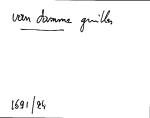 van Damme guilles
1691/24